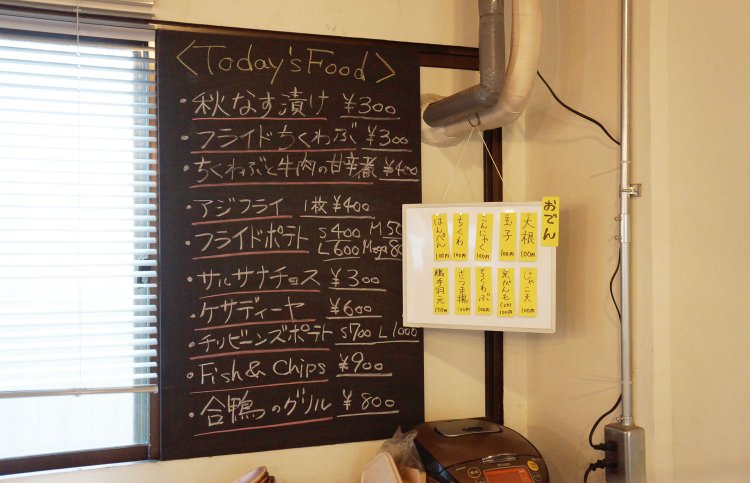 <Today's Food>
・秋なす漬け ¥300
・フライドちくわぶ ¥300
・ちくわぶと牛肉の甘辛煮 ¥400
・アジフライ 1枚 ¥400
・フライドポテト S400 M50
L600 Mega80
・サルサナチョス ¥300
・ケサディーヤ ¥600
・チリビーンズポテト S700 L1000
・Fish & Chips ¥900
・合鴨のグリル ¥800
おでん
大根 100円
玉子 100円
こんにゃく 100円
ちくわ 100円
はんぺん 100円
じゃこ天 100円
京がんも 100円
ちくわぶ 100円
さつま揚 100円
鶏手羽元 150円